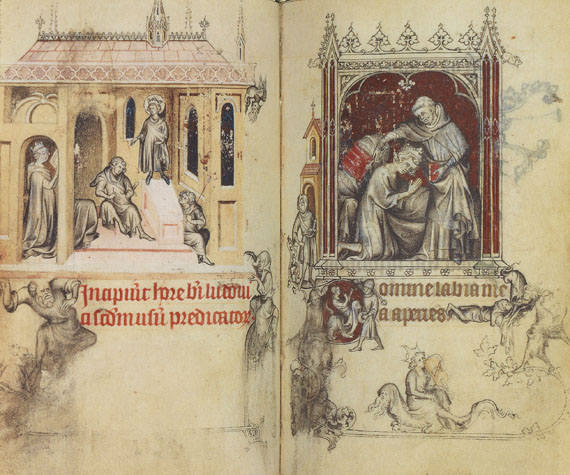 Incipiūt hore bī ludoui
ci scd̄m usū predicator
Domine labia me
a aperies